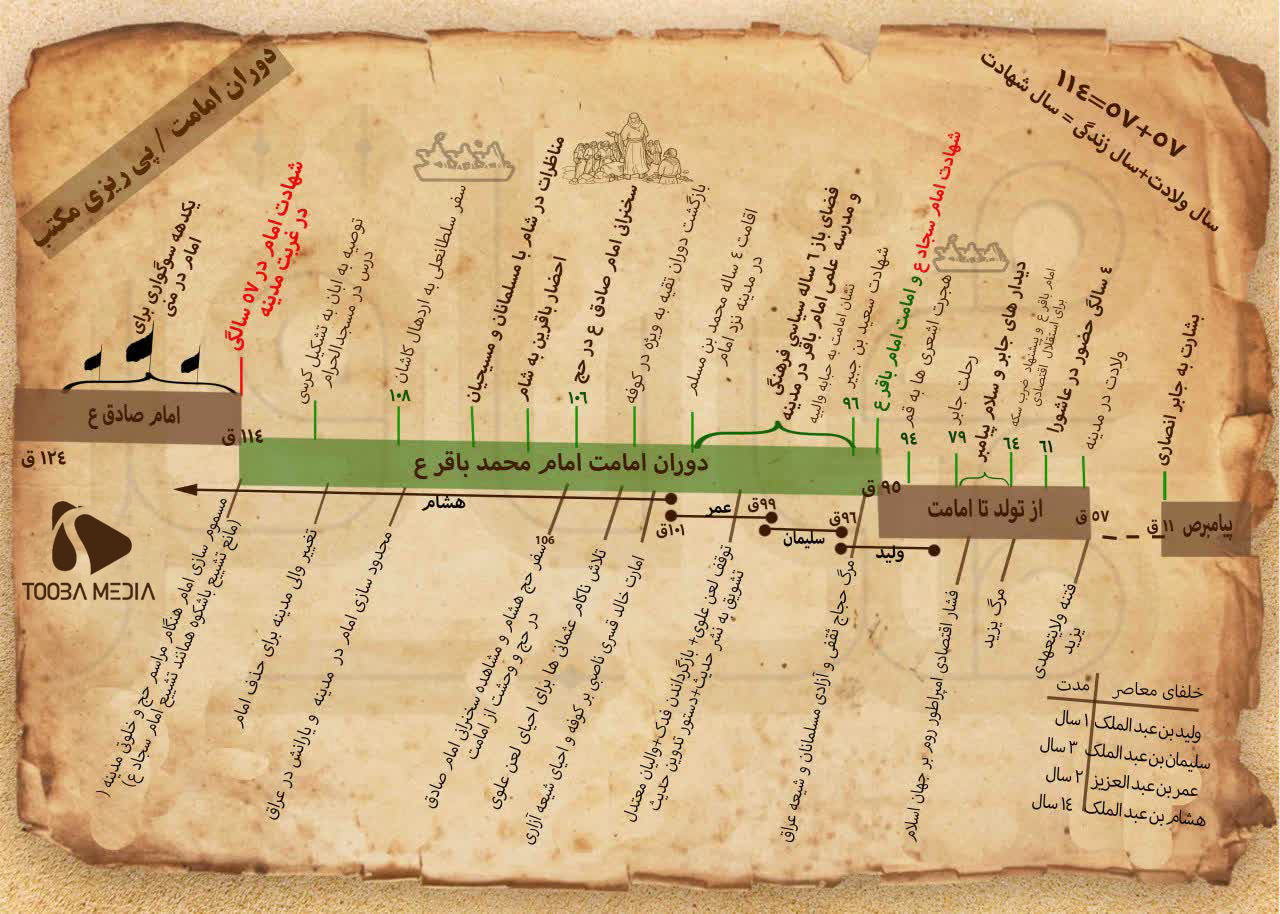 دوران امامت / پی ریزی مکتب
۵۷+۵۷=۱۱۴
سال ولادت+سال زندگی = سال شهادت
بشارت به جابر انصاری
ولادت در مدینه
۴ سالگی حضور در عاشورا
۶۱
امام باقر ع و پیشنهاد ضرب سکه
برای استقلال اقتصادی
۶۴
دیدار های جابر و سلام پیامبر
رحلت جابر
۷۹
هجرت اشعری ها به قم
۹۴
شهادت امام سجاد ع و امامت امام باقر ع
شهادت سعید بن جبیر
۹۶
نشان امامت به حبابه والبیه
فضای باز ۶ ساله سیاسی فرهنگی
و مدرسه علمی امام باقر در مدینه
اقامت ۴ ساله محمد بن مسلم
در مدینه نزد امام
بازگشت دوران تقیه به ویژه در کوفه
سخنرانی امام صادق ع در حج
۱۰۶
احضار باقرین به شام
مناظرات در شام با مسلمانان و مسیحیان
سفر سلطانعلی به اردهال کاشان
۱۰۸
توصیه به ابان به تشکیل کرسی
درس در مسجدالحرام
شهادت امام در ۵۷ سالگی
در غربت مدینه
یکدهه سوگواری برای
امام در منی
پیامبرص
۱۱ ق
۵۷ ق
از تولد تا امامت
۹۵ ق
دوران امامت امام محمد باقر ع
۱۱۴ ق
امام صادق ع
۱۲۴ ق
ولید
۹۶ق
سلیمان
۹۹ق
عمر
۱۰۱ق
هشام
فتنه ولایتعهدی
یزید
مرگ یزید
فشار اقتصادی امپراطور روم بر جهان اسلام
مرگ حجاج ثقفی و آزادی مسلمانان و شیعه عراق
توقف لعن علوی+ بازگرداندن فدک+والیان معتدل
تشویق به نشر حدیث+دستور تدوین حدیث
امارت خالد قسری ناصبی بر کوفه و احیای شیعه آزاری
تلاش ناکام عثمانی ها برای احیای لعن علوی
106
سفر حج هشام و مشاهده سخنرانی امام صادق
در حج و وحشت از امامت
محدود سازی امام در مدینه و یارانش در عراق
تغییر والی مدینه برای حذف امام
مسموم سازی امام هنگام مراسم حج و خلوتی مدینه (
(مانع تشییع باشکوه همانند تشییع امام سجاد ع)
TOOBA MEDIA
خلفای معاصر مدت
ولیدبن‌عبدالملک ۱ سال
سلیمان‌بن‌عبدالملک ۳ سال
عمربن‌عبدالعزیز ۲ سال
هشام‌بن‌عبدالملک ۱۴ سال